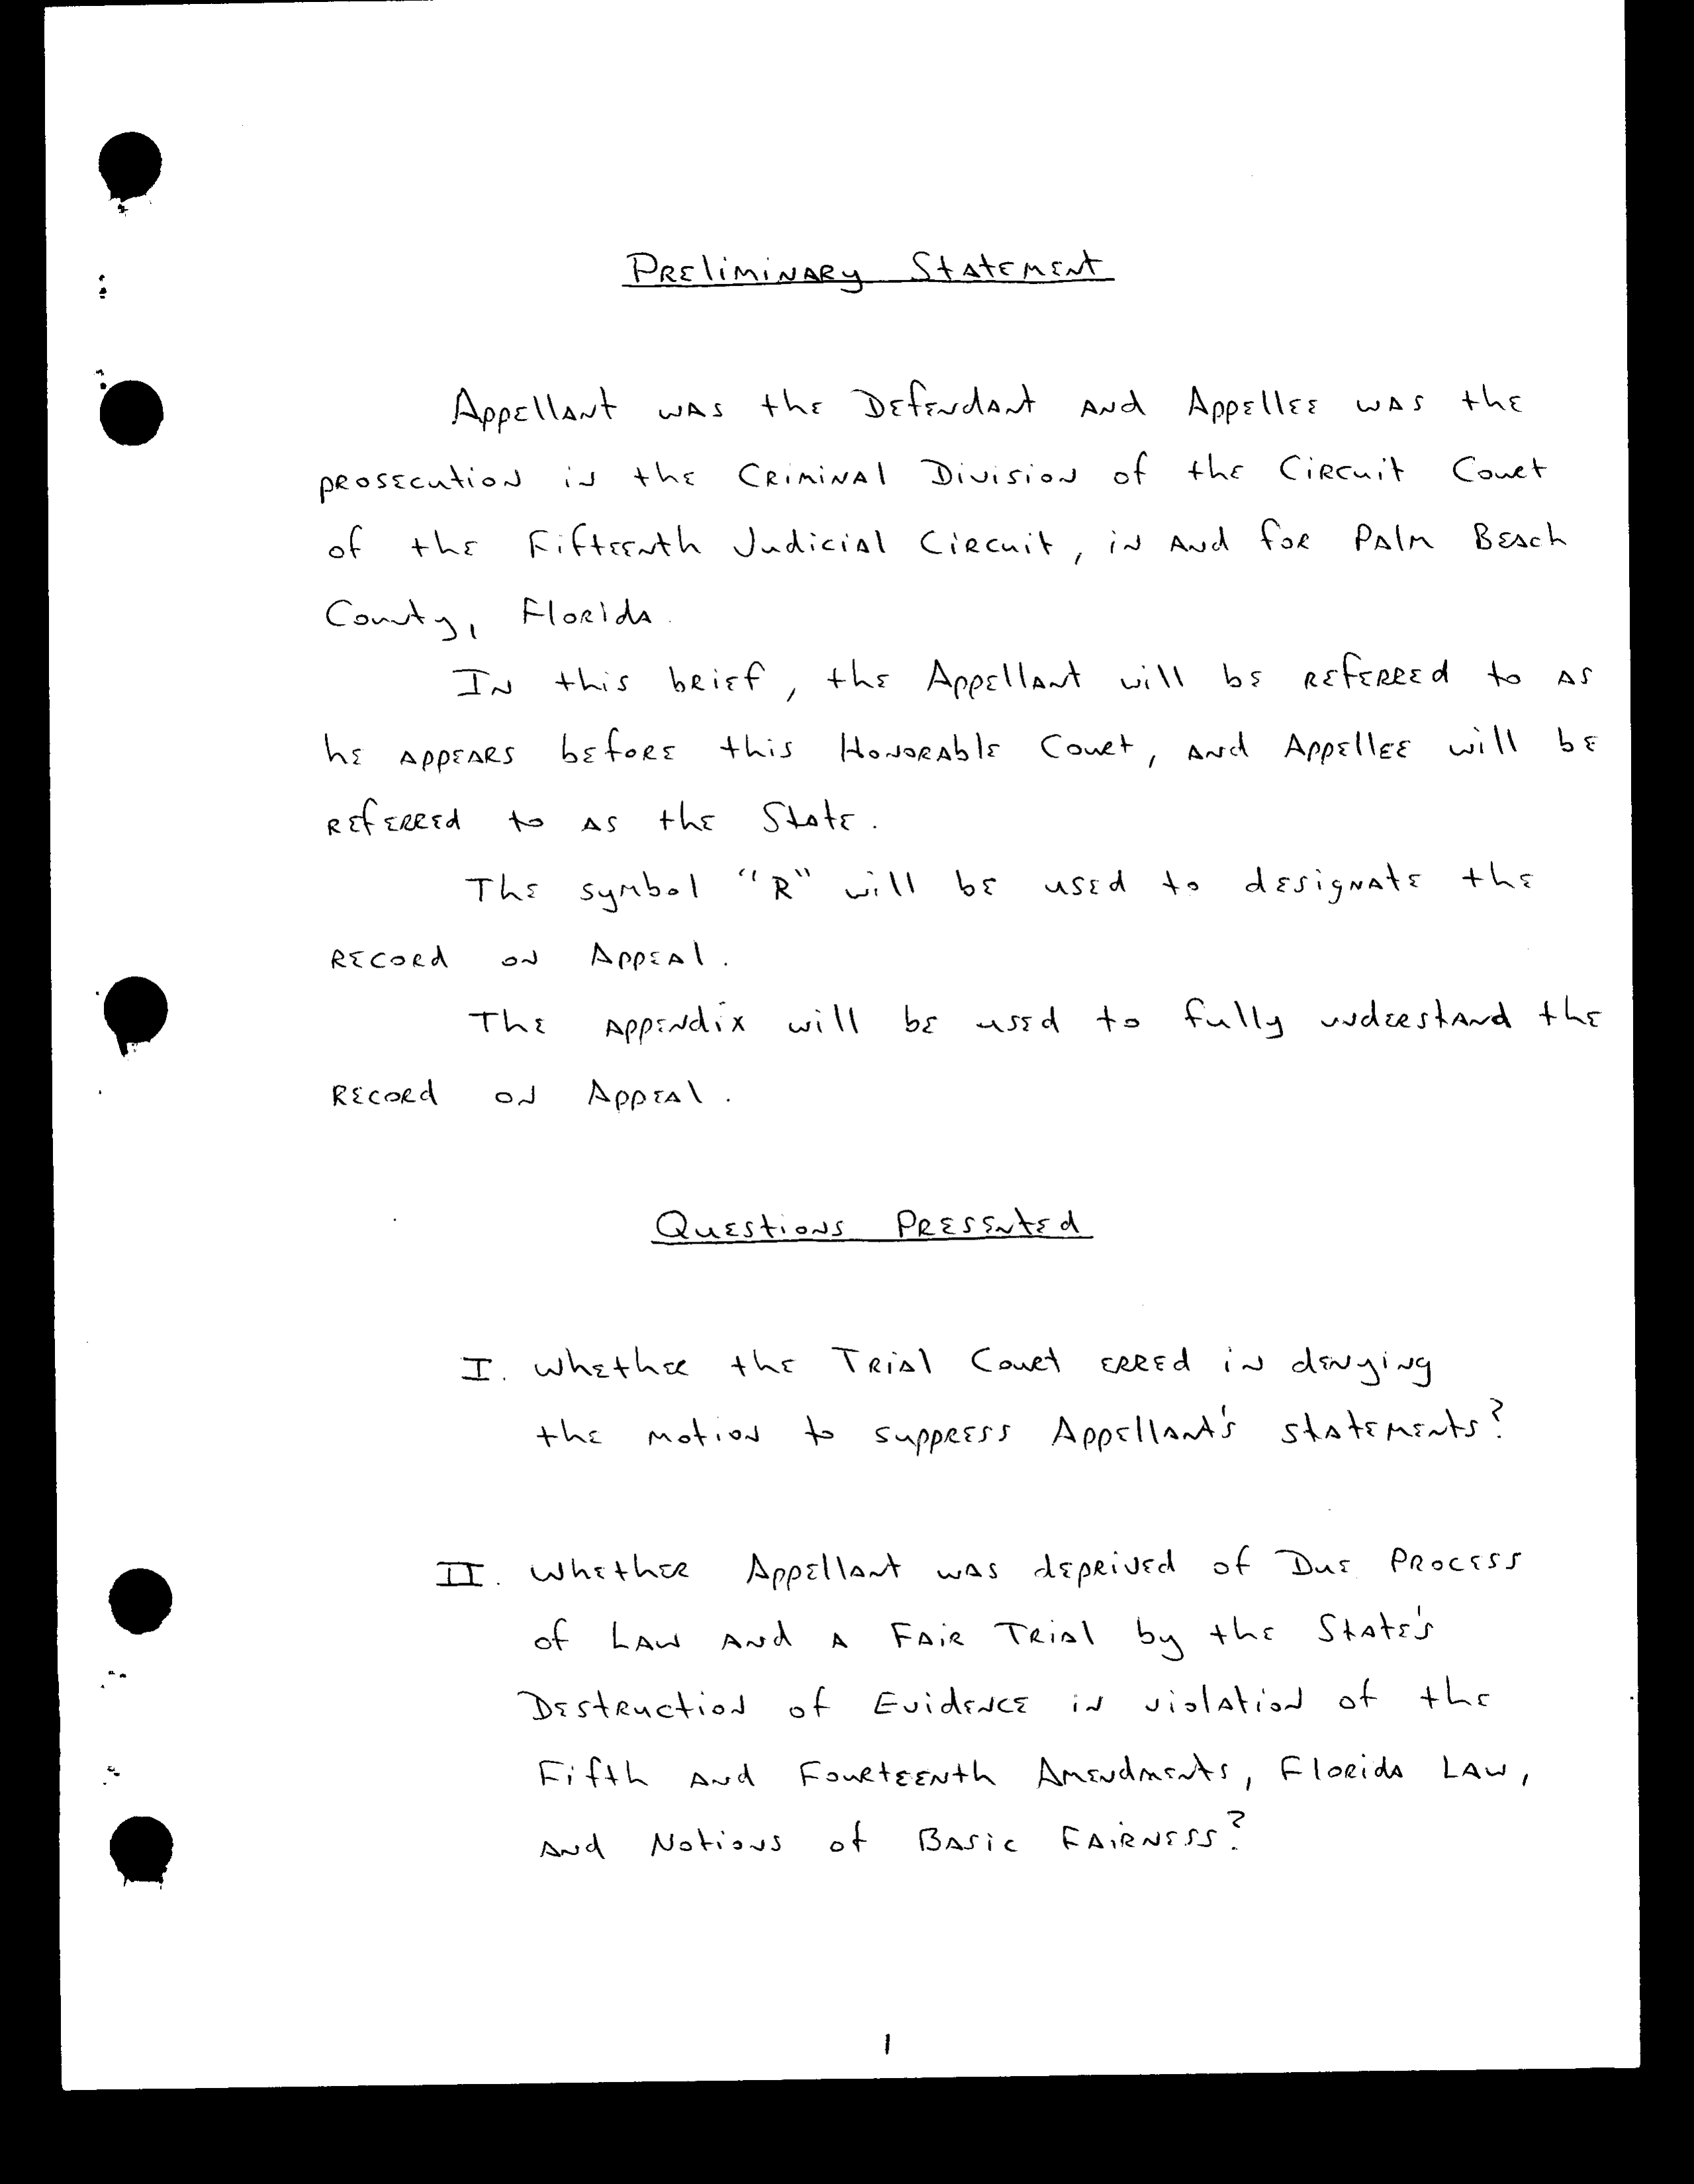 Preliminary Statement
Appellant was the Defendant and Appellee was the
prosecution in the Criminal Division of the Circuit Court
of the Fifteenth Judicial Circuit, in and for Palm Beach
County, Florida.
In this brief, the Appellant will be referred to as
he appears before this Honorable Court, and Appellee will be
referred to as the State.
The symbol "R" will be used to designate the
Record on Appeal.
The appendix will be used to fully understand the
Record on Appeal.
Questions Presented
I. Whether the Trial Court erred in denying
the motion to suppress Appellant's statements?
II. Whether Appellant was deprived of Due Process
of Law and a Fair Trial by the State's
Destruction of Evidence in violation of the
Fifth and Fourteenth Amendments, Florida Law,
and Notions of Basic Fairness?
1